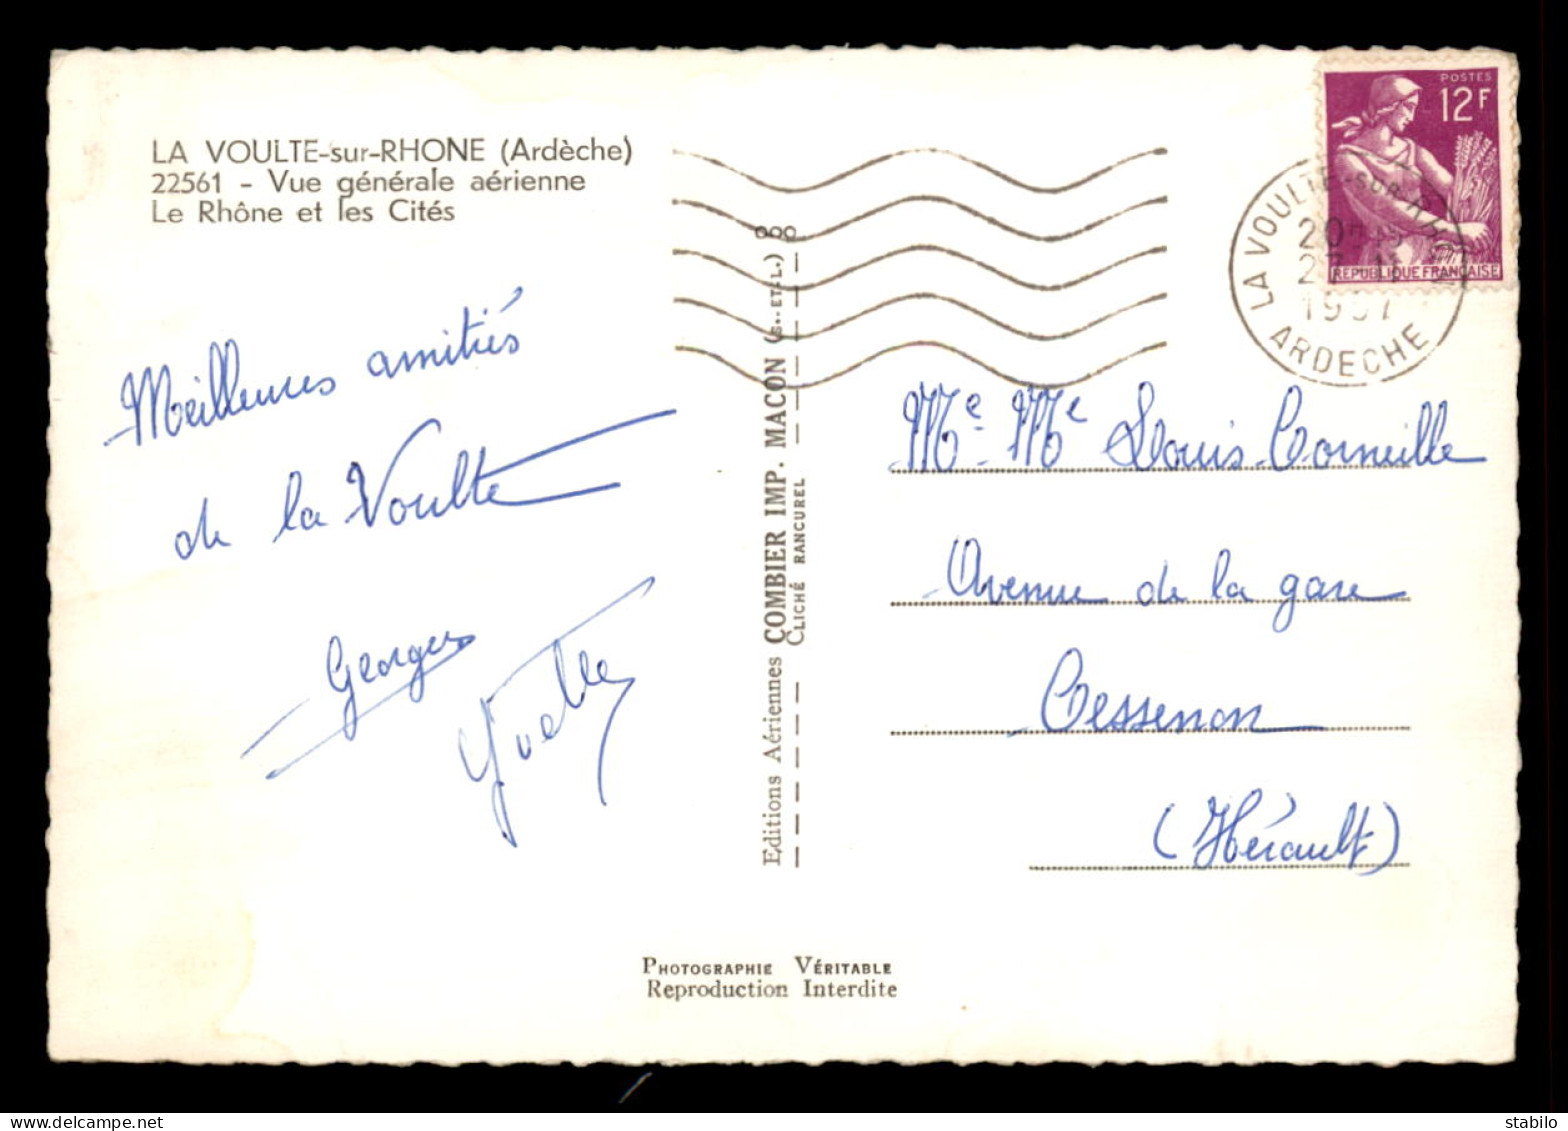 LA VOULTE-sur-RHONE (Ardèche)
22561 - Vue générale aérienne
Le Rhône et les Cités
Meilleures amitiés
de la Voulte
Georges
Yvette
Editions Aériennes COMBIER IMP. MACON (S.-ET-L.)
CLICHÉ RANCUREL
POSTES
12F
REPUBLIQUE FRANÇAISE
LA VOULTE-sur-RHONE
1957
ARDECHE
Me. Me Louis Corneille
Avenue de la gare
Cessenon
(Hérault)
PHOTOGRAPHIE VÉRITABLE
Reproduction Interdite
stabilo